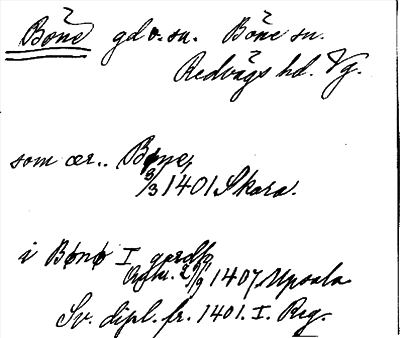 Böne gd o. sn. Böne sn.
Redvägs hd. Vg.
som ær.. Bøne,
3/3 1401 Skara.
i Bønø I gardh,
1407 Upsala
Sv. dipl. fr. 1401. I. Reg.